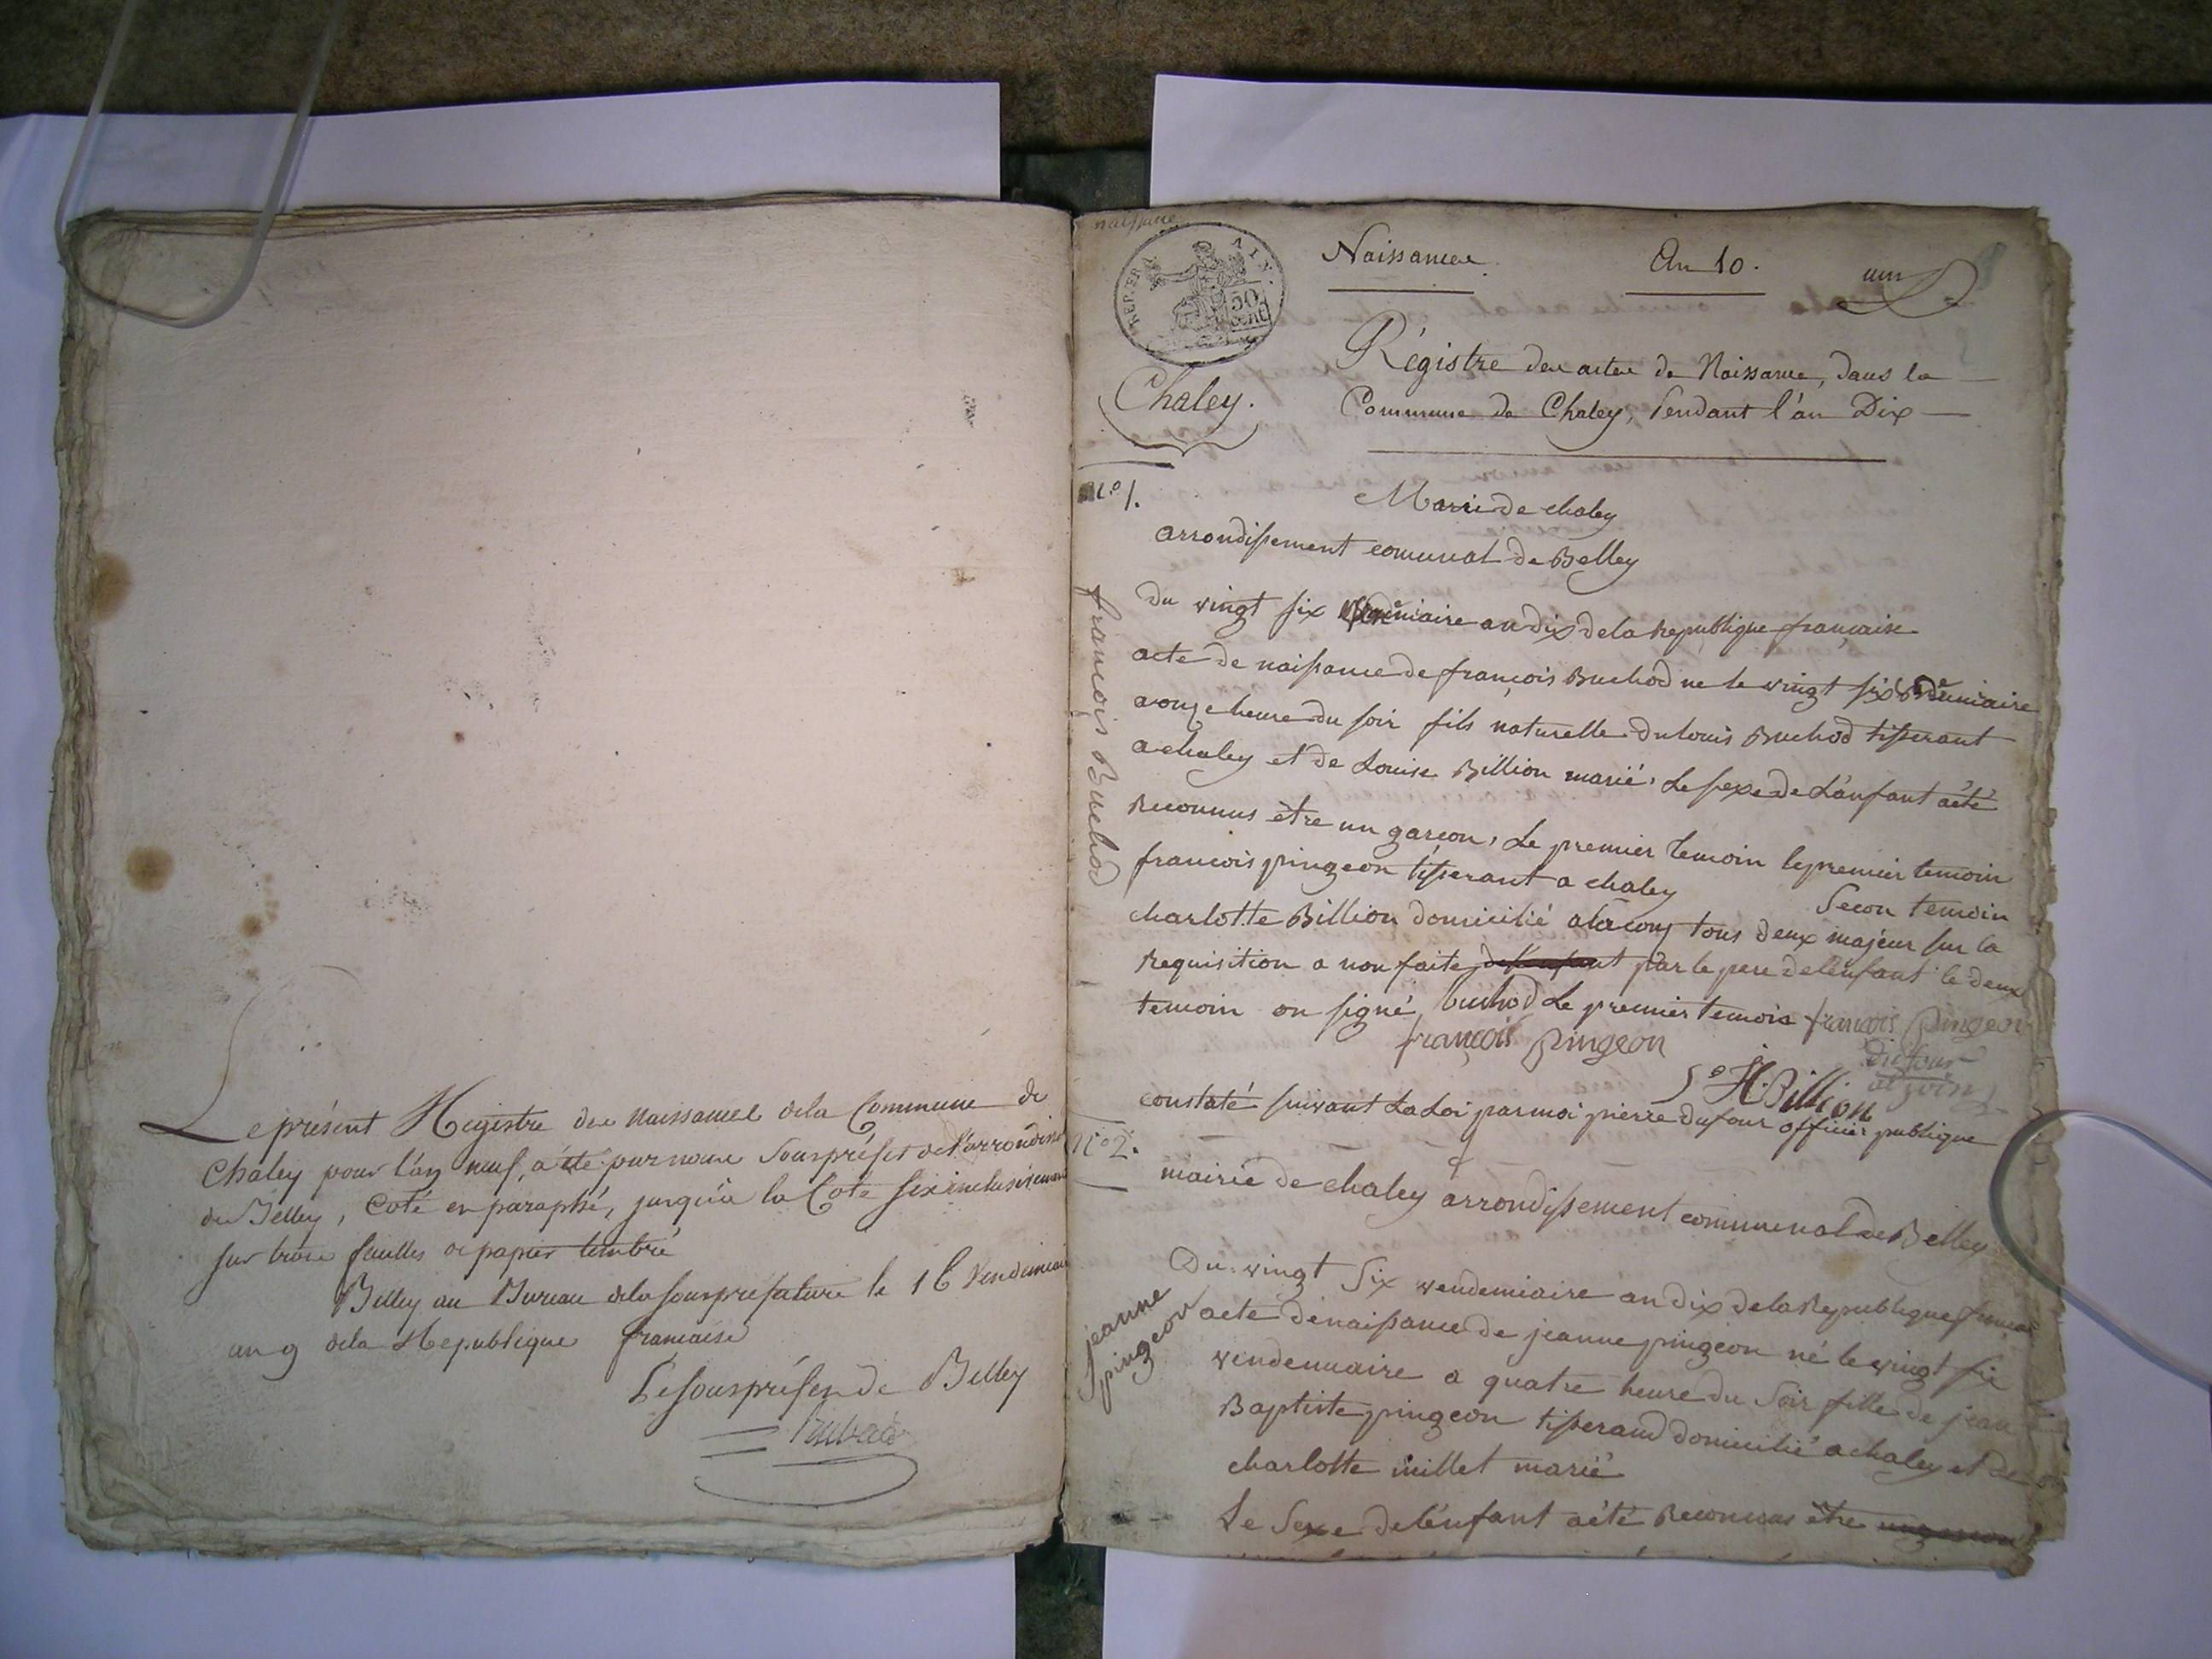 Le présent Registre des Naissances de la Commune de
Chaley pour l'an neuf, a été par nous Sousprefet de l'arrondisst
de Belley, Coté et paraphé, jusqu'à la Cote six inclusivement
sur trois feuilles de papier timbré
Belley au Bureau de la Sousprefature le 16 Vendemiaire
an 9 de la Republique francaise
Le Sousprefet de Belley
naissance
REP. FRA
50
CENT
Naissance. An 10. un
Chaley.
Régistre des actes de Naissance, dans la
Commune de Chaley, Pendant l'an Dix
N.o 1.
françois Buchod
Marri de chaley
arrondissement comunal de Belley
du vingt six vendemiaire an dix de la Republique française
acte de naissance de françois Buchod ne le vingt six vendemiaire
a onze heure du soir fils naturelle du louis Buchod tisserant
a chaley et de Louise Billion marié, Le sexe de L'anfant a été
Reconnus être un garcon, Le premier temoin le premier temoin
francois pingeon tisserant a chaley Secon temoin
charlotte Billion domicilié a tous deux majeur sur la
Requisition a nou faite de l'enfant par le pere de lenfant le deux
temoin on signé, buchod Le premier temoin francois pingeon
françois pingeon
Dufour
Billion
constaté suivant La Loi par moi pierre dufour officier publique
N.o 2.
mairie de chaley arrondissement communal de Belley
jeanne
pingeon
Du vingt Six vendemiaire an dix de la Republique
acte de naissance de jeanne pingeon né le vingt six
vendemiaire a quatre heure du Soir fille de jean
Baptiste pingeon tisserand domicilié a chaley et de
charlotte millet marié
Le Sexe de lenfant a été Reconnus être un garcon